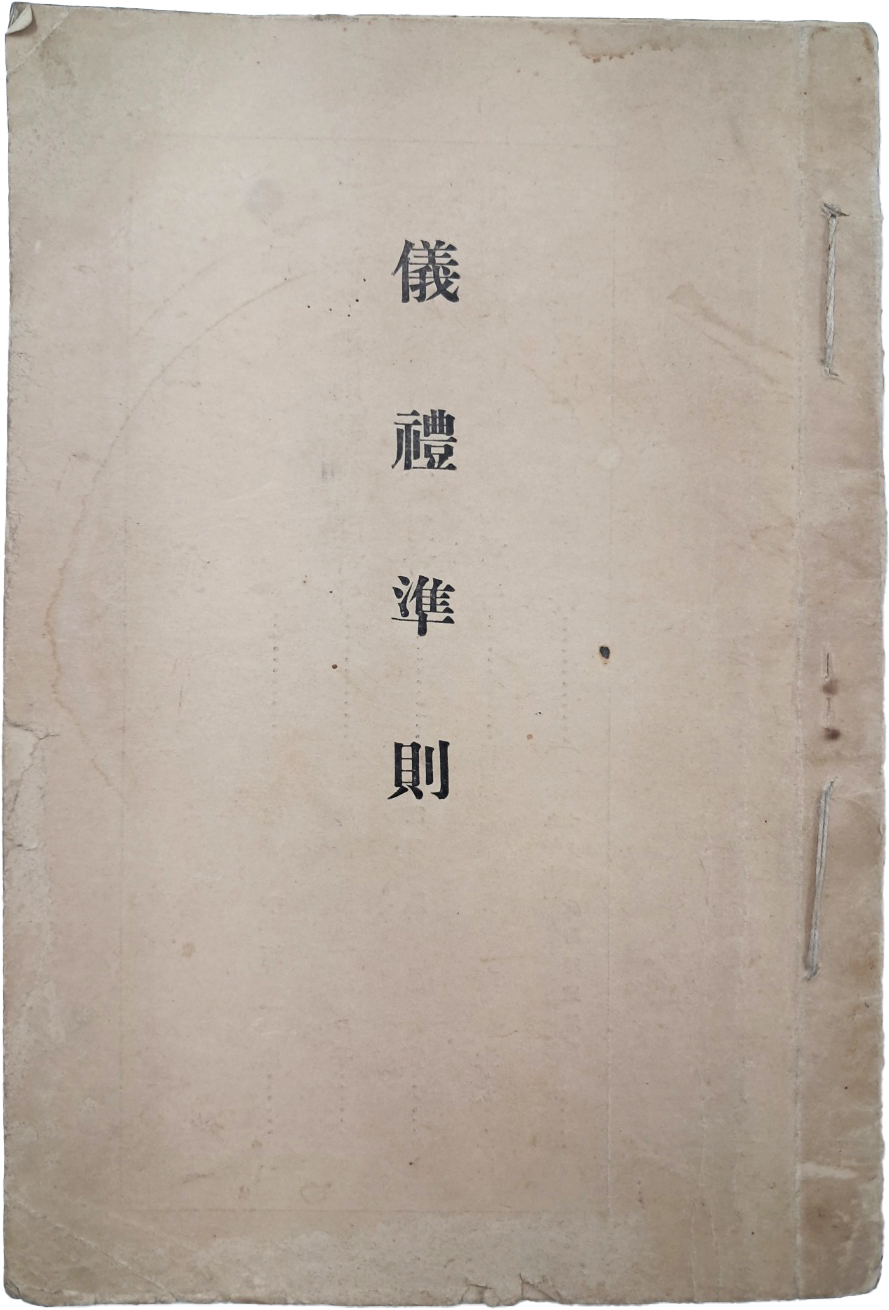 儀禮準則